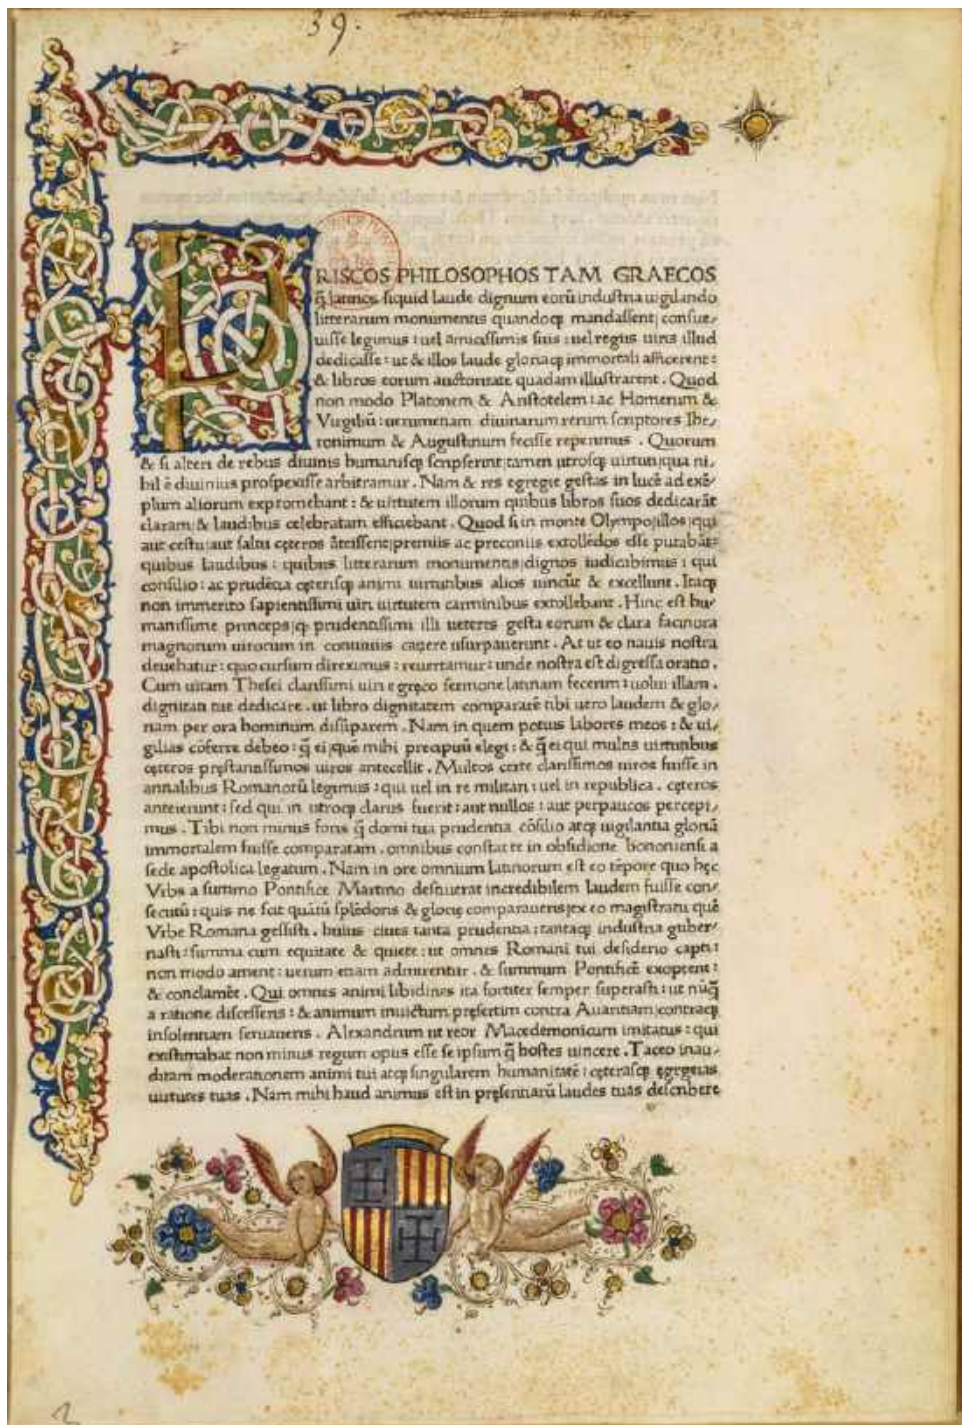 39.
PRISCOS PHILOSOPHOS TAM GRAECOS
q̃ latinos siquid laude dignum eorū industria uigilando
litterarum monumentis quandoq; mandassent; consue/
uisse legimus: uel amicissimis suis: uel regiis uiris illud
dedicasse: ut & illos laude gloriaq; immortali afficerent:
& libros eorum auctoritate quadam illustrarent. Quod
non modo Platonem & Aristotelem: ac Homerum &
Virgiliū: uerumetiam diuinarum rerum scriptores Ihe/
ronimum & Augustinum fecisse reperimus. Quorum
& si alteri de rebus diuinis humanisq; scripserint; tamen utrosq; uirtuti; qua ni/
hil ē diuinius prospexisse arbitramur. Nam & res egregie gestas in lucē ad exē/
plum aliorum expromebant: & uirtutem illorum quibus libros suos dedicarāt
claram: & laudibus celebratam efficiebant. Quod si in monte Olympo; illos; qui
aut cestu: aut saltu cęteros āteissent; premiis ac preconiis extollēdos esse putabāt:
quibus laudibus: quibus litterarum monumentis dignos iudicabimus: qui
consilio: ac prudētia cęterisq; animi uirtutibus alios uincūt & excellunt. Itaq;
non immerito sapientissimi uiri uirtutem carminibus extollebant. Hinc est hu/
manissime princeps; q prudentissimi illi ueteres gesta eorum & clara facinora
magnorum uirorum in conuiuiis canere usurpauerunt. At ut eo nauis nostra
deuehatur: quo cursum direximus: reuertamur: unde nostra est digressa oratio.
Cum uitam Thesei clarissimi uiri e gręco sermone latinam fecerim: uolui illam.
dignitati tue dedicare. ut libro dignitatem compararē tibi uero laudem & glo/
riam per ora hominum dissiparem. Nam in quem potius labores meos: & ui/
gilias cōferre debeo: q̃ ei; quē mihi precipuū elegi: & q̃ ei qui multis uirtutibus
cęteros pręstantissimos uiros antecellit. Multos certe clarissimos uiros fuisse in
annalibus Romanorū legimus: qui uel in re militari: uel in republica. cęteros
anteierunt: sed qui in utroq; clarus fuerit: aut nullos: aut perpaucos percepi/
mus. Tibi non minus foris q̃ domi tua prudentia cōsilio atq; uigilantia gloriā
immortalem fuisse comparatam. omnibus constat te in obsidione bononiensi a
sede apostolica legatum. Nam in ore omnium latinorum est eo tēpore quo hęc
Vrbs a summo Pontifice Martino desciuerat incredibilem laudem fuisse con/
secutū: quis ne scit quātū splēdoris & glorię comparaueris; ex eo magistratu quē
Vrbe Romana gessisti. huius ciues tanta prudentia: tantaq; industria guber/
nasti: summa cum equitate & quiete: ut omnes Romani tui desiderio capti:
non modo ament: uerum etiam admirentur. & summum Pontificē exoptent:
& conclamēt. Qui omnes animi libidines ita fortiter semper superasti: ut nūq̃
a ratione discesseris: & animum inuictum pręsertim contra Auaritiam; contraq;
insolentiam seruaueris. Alexandrum ut reor Macedemonicum imitatus: qui
existimabat non minus regum opus esse se ipsum q̃ hostes uincere. Taceo inau/
ditam moderationem animi tui atq; singularem humanitatē: cęterasq; ęgregias
uirtutes tuas. Nam mihi haud animus est in pręsentiarū laudes tuas describere
2